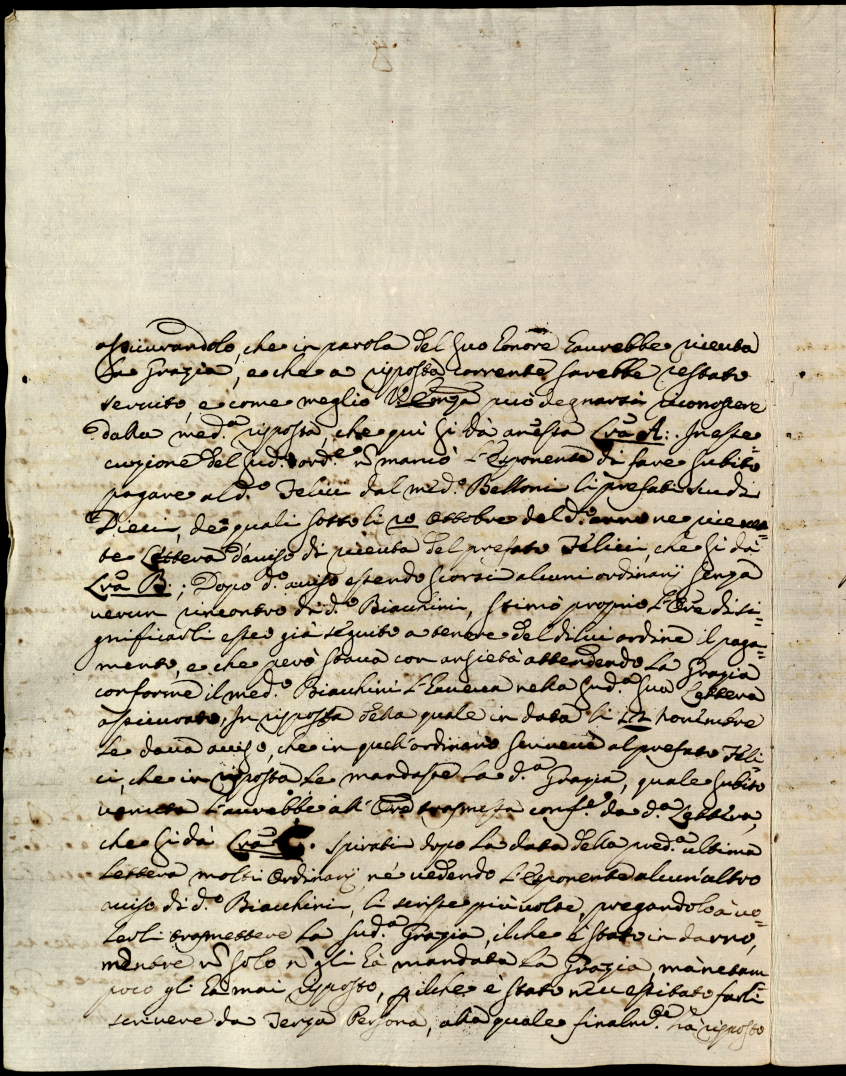 assicurandolo, che in parola del suo honore haurebbe riceuta
la Grazia, e che a risposta corrente sarebbe restato
seruito, e come meglio può degnarsi riconoscere
dalla med.ª risposta, che qui si dà anessa Lra A: In ese=
cuzione del sud.º ord.e ñ mancò l'Esponente di fare subito
pagare al d.º Felici dal med.º Belloni li prefati scudi
Dieci, de quali sotto li 20 Ottobre del d.º anno ne riceue=
te Lettera d'auiso di riceuta del prefato Felici, che si dà
Lra B:; Dopo d.º auiso essendo scorsi alcuni ordinarij senza
uerun incontro di d.º Bianchini, stimò proprio l'Ore di si=
gnificarli esser già seguito a tenore del di lui ordine il paga=
mento, e che però staua con ansietà attendendo la Grazia
conforme il med.º Bianchini l'haueua nella sud.ª sua Lettera
assicurato, In risposta della quale in data li 12 Nouembre
le daua auiso, che in quell'ordinario scriueua al prefato Feli=
ci, che in risposta le mandasse la d.ª Grazia, quale subito
uenuta l'aurebbe all'Ore trasmessa conf.e da d.ª Lettera,
che si dà Lra C. Spirati dopo la data della pred.ª ultima
Lettera molti Ordinarij, nè uedendo l'Esponente alcun'altro
auiso di d.º Bianchini, li scrisse più uolte, pregandolo à uo=
lerli trasmettere la sud.ª Grazia, il che è stato in darno,
mentre ñ solo ñ gli hà mandata la Grazia, mà ne tam
poco gli hà mai risposto, p il che è stato necessitato farli
scriuere da Terza Persona, alla quale finalm.e hà risposto